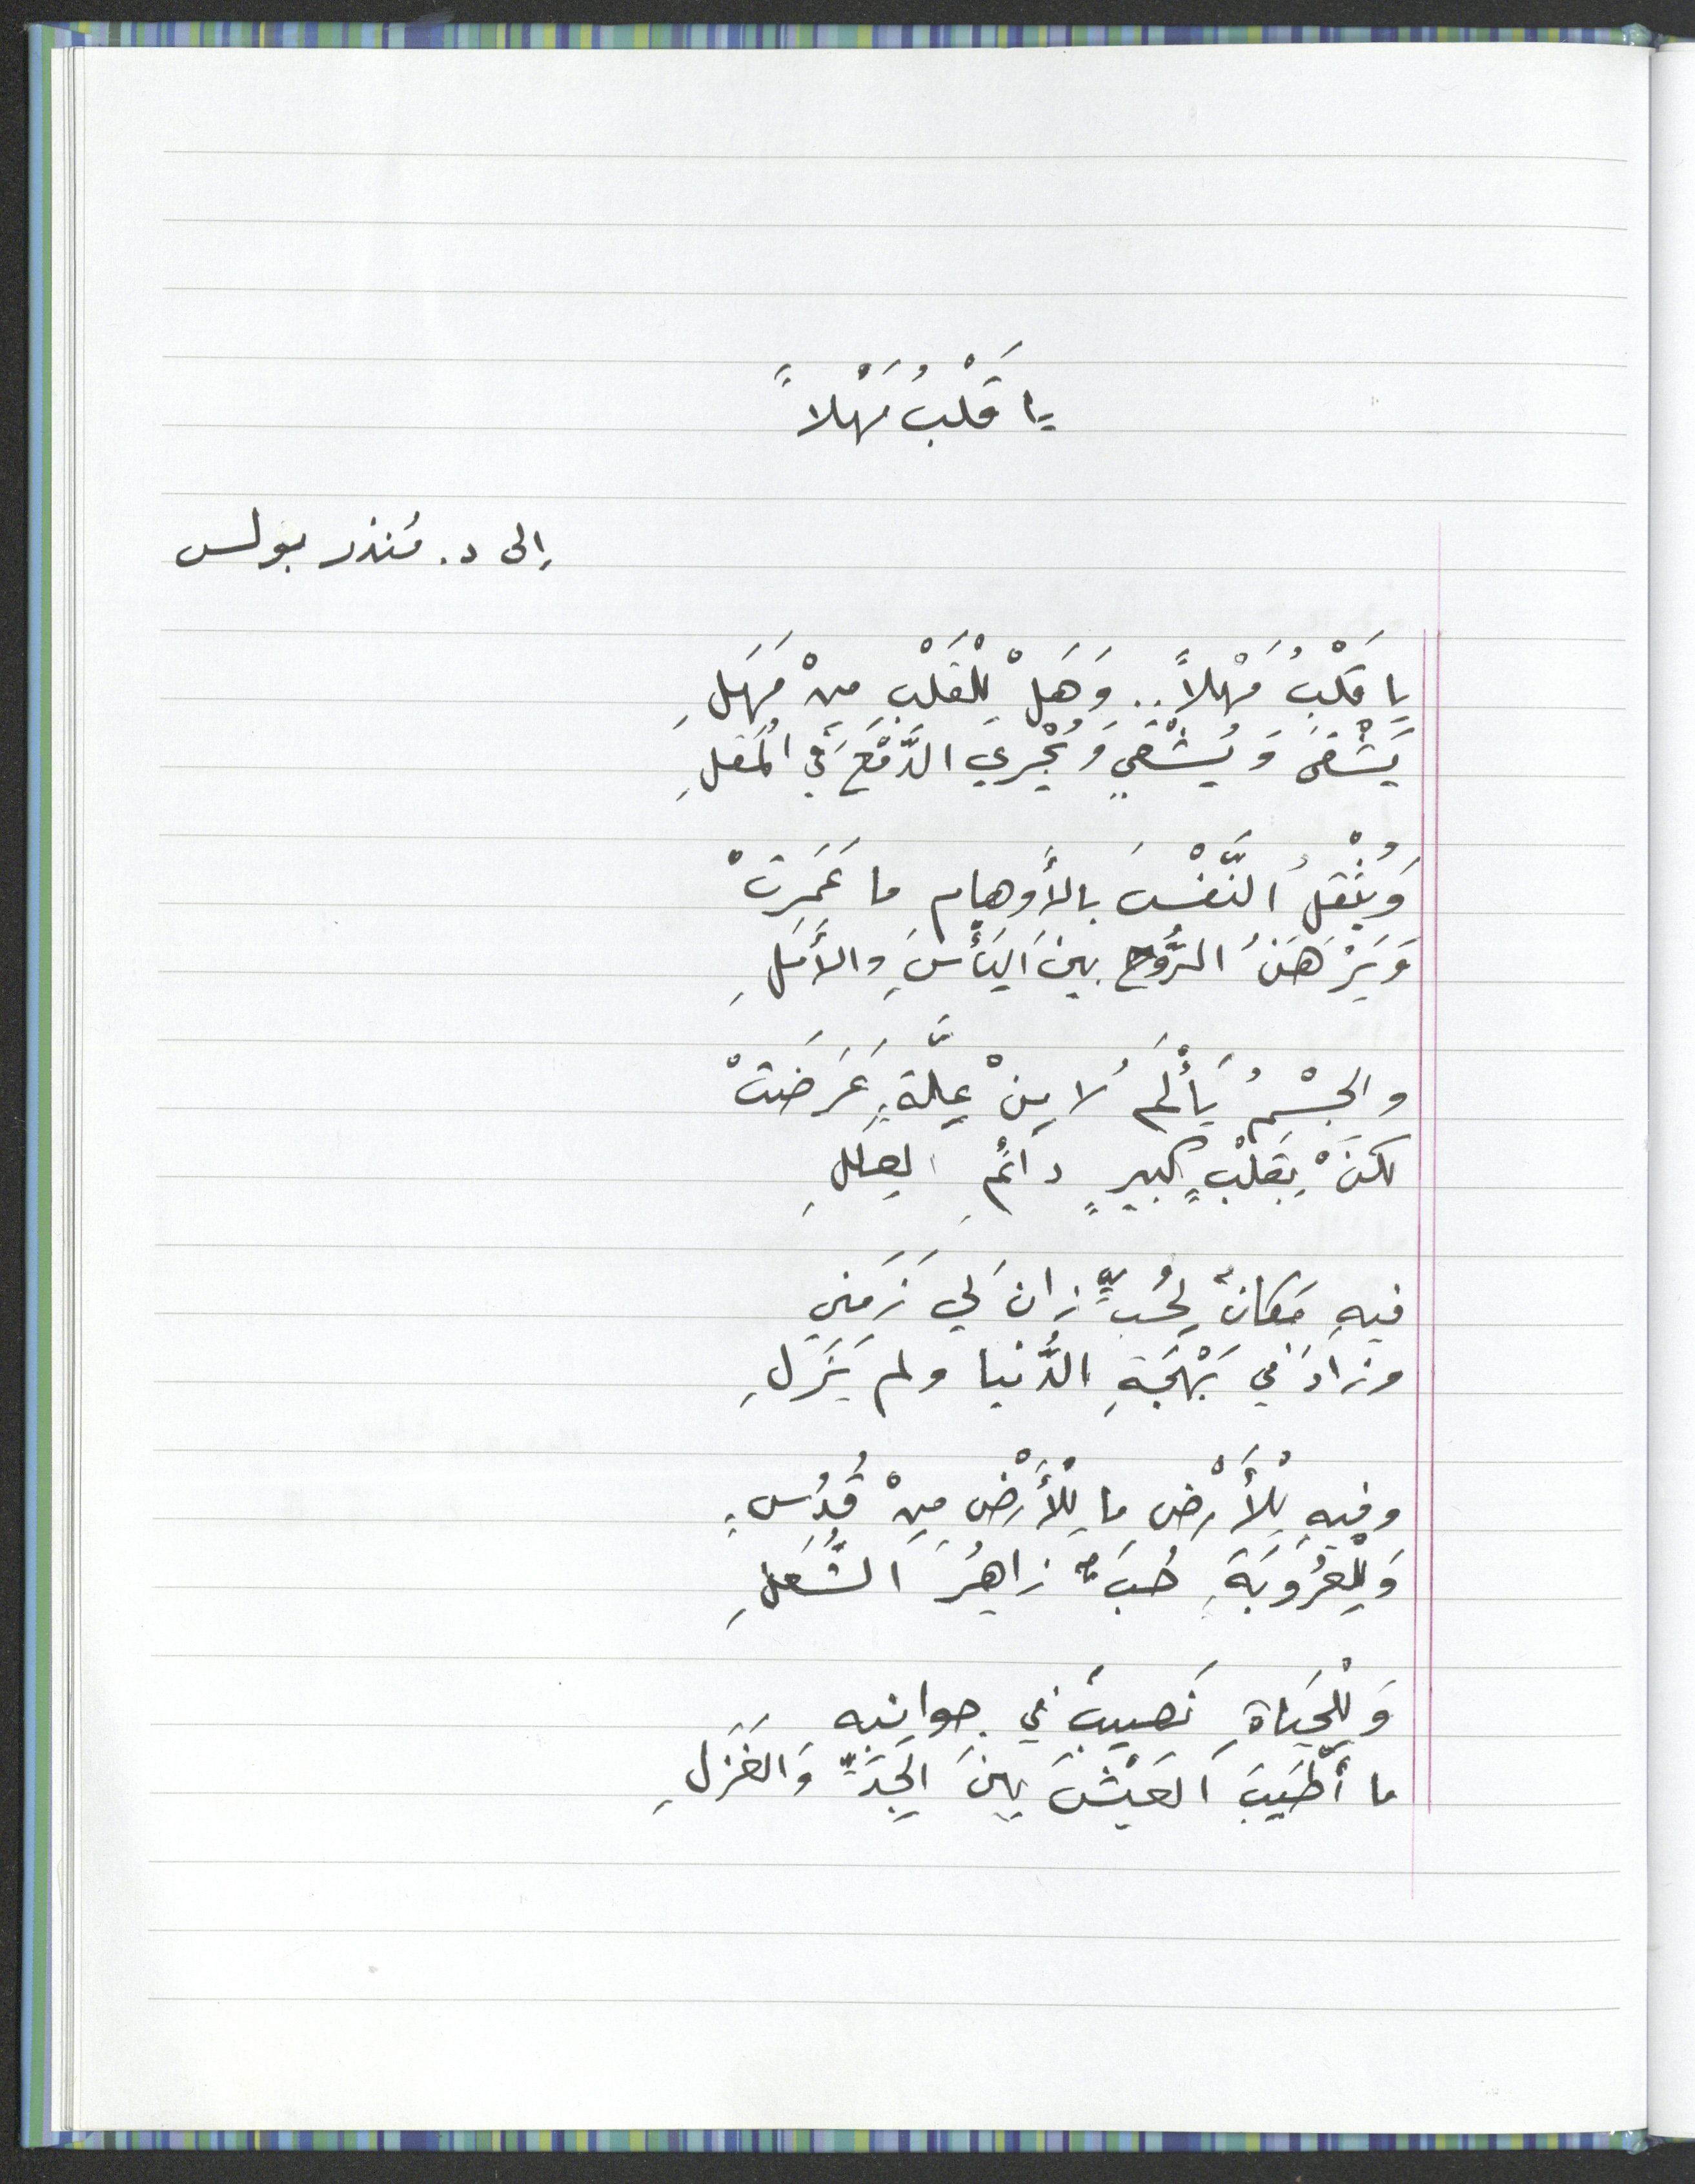 يا قَلْبُ مَهْلاً
إلى د. مُنذر بولس
يا قَلْبُ مَهْلاً .. وَهَلْ لِلْقَلْبِ مِنْ مَهَلِ
يَشْقَى وَيُشْقِي وَيُجْرِي الدَّمْعَ في المُقَلِ
وَيُثْقِلُ النَّفْسَ بالأَوهامِ ما عَمَرَتْ
وَيَرْهَنُ الرُّوحَ بينَ اليَأْسِ والأَمَلِ
والجِسْمُ يَأْلَمُ لا مِنْ عِلَّةٍ عَرَضَتْ
لكنْ بِقَلْبٍ كبيرٍ دائمِ العِلَلِ
فيهِ مَكانٌ لِحُبٍّ زانَ لي زَمَني
وزادَ في بَهْجَةِ الدُّنيا ولم يَزَلِ
وفيهِ لِلأَرْضِ ما لِلأَرْضِ مِنْ قُدُسٍ
وَلِلْعُرُوبَةِ حُبٌّ زاهِرُ الشُّعَلِ
وَلِلْحَيَاةِ نَصيبٌ في جوانِبِهِ
ما أَطْيَبَ العَيْشَ بينَ الجِدِّ وَالغَزَلِ